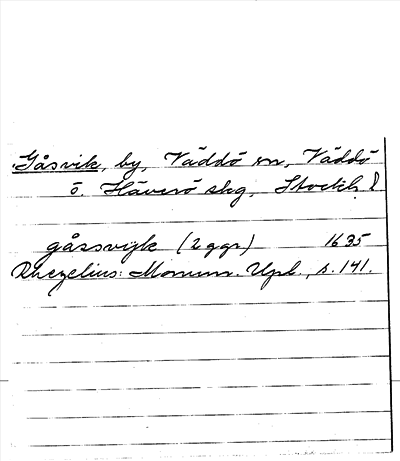 Gåsvik, by, Väddö sn, Väddö
o. Häverö skg, Stockh. l
gåssvigk (2 ggr) 1635
Rhezelius: Monum. Upl., s. 141.